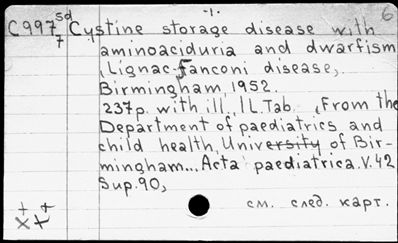 -1. 6
C997 sd Cystine storage disease with
7 aminoaciduria and dwarfism
, Lignac-Fanconi disease,.
Birmingham, 1952.
237p. with ill, 1 L. Tab. , From the
Department of paediatrics and
child health, University of Bir-
mingham... Acta paediatrica. V. 42
Sup. 90,
см. след. карт.